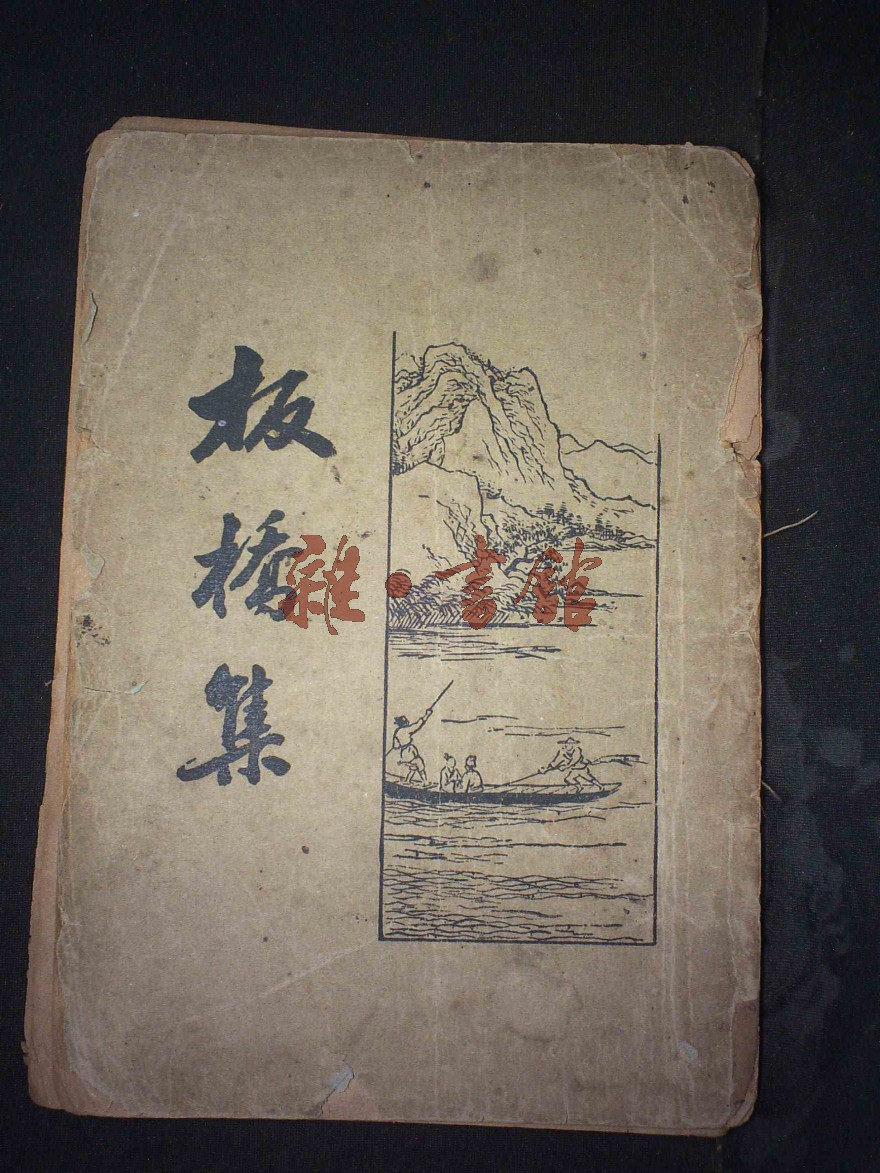 板橋集
雜·書館